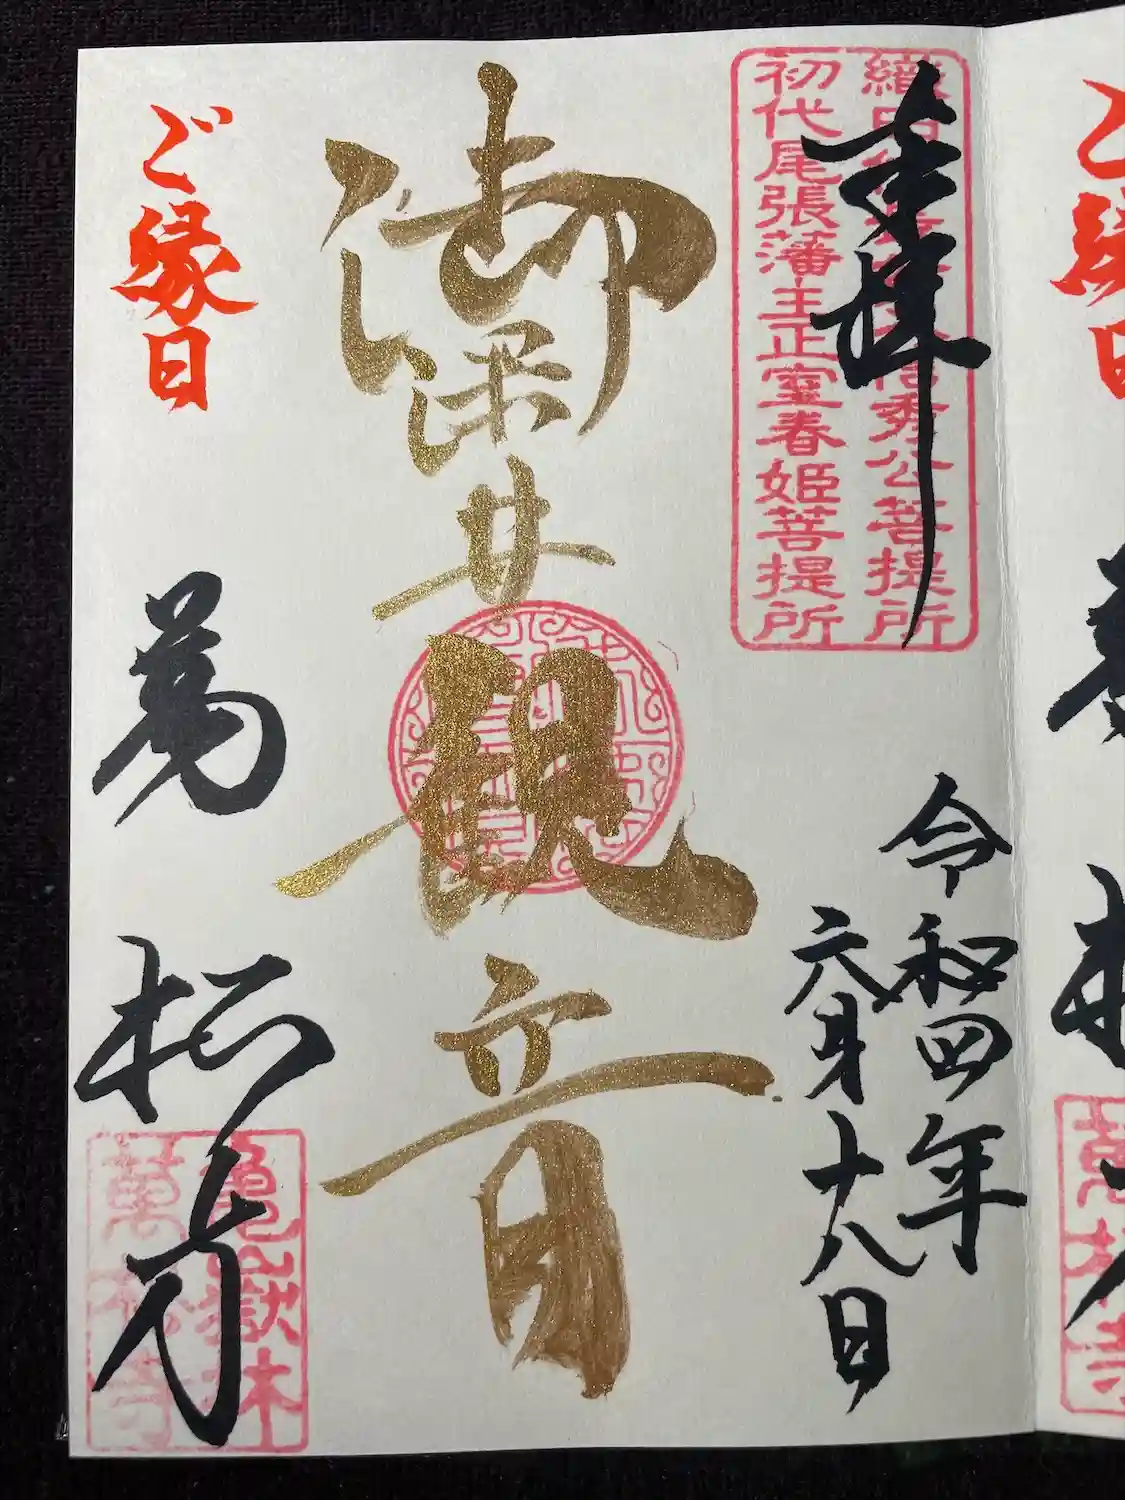 奉拝
織田
信秀公菩提所
初代尾張藩主正室春姫菩提所
令和四年
六月十八日
御深井観音
ご縁日
萬松寺
亀嶽林
萬松寺